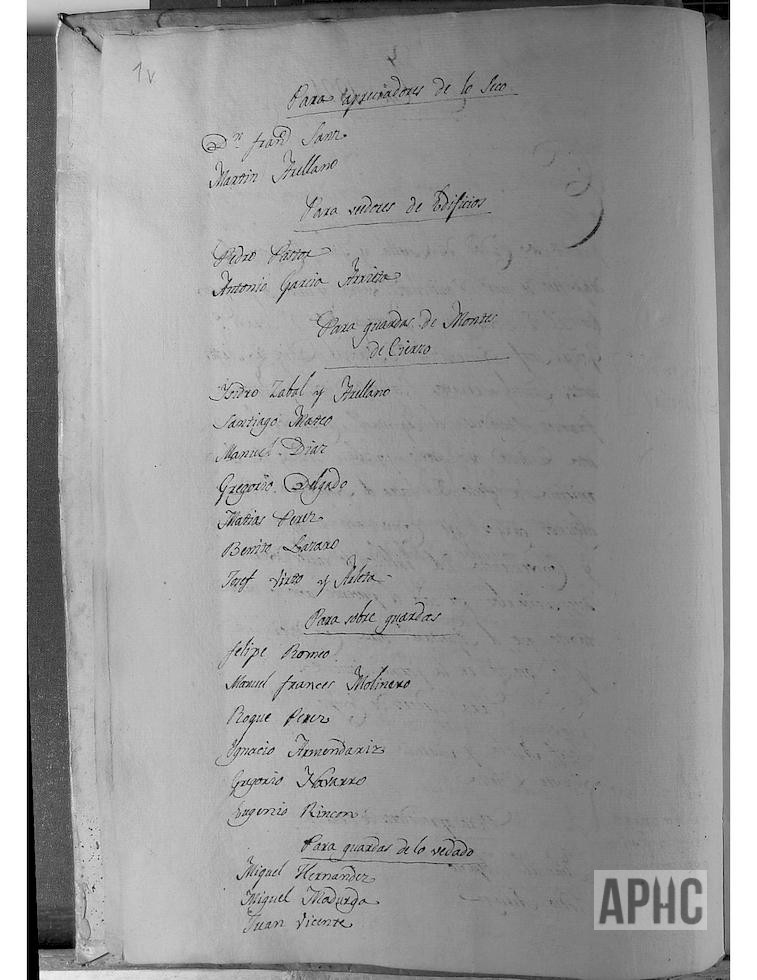 1v
Para apreciadores de lo Seco
Dn. fran.co Sanz
Martin Arellano
Para veedores de Edificios
Pedro Pastor
Antonio Garcia Arrieta
Para guardas de Montes
de Cierzo
Ysidro Zabal y Arellano
Santiago Mateo
Manuel Diaz
Gregorio Delgado
Matias Perez
Benito Lazaro
Josef Virto y Arleta
Para sobre guardas
felipe Romeo
Manuel frances Molinero
Roque Perez
Ygnacio Armendariz
Gregorio Navarro
Eugenio Rincon
Para guardas de lo vedado
Miguel Hernandez
Miguel Madurga
Juan Vicente
APHC